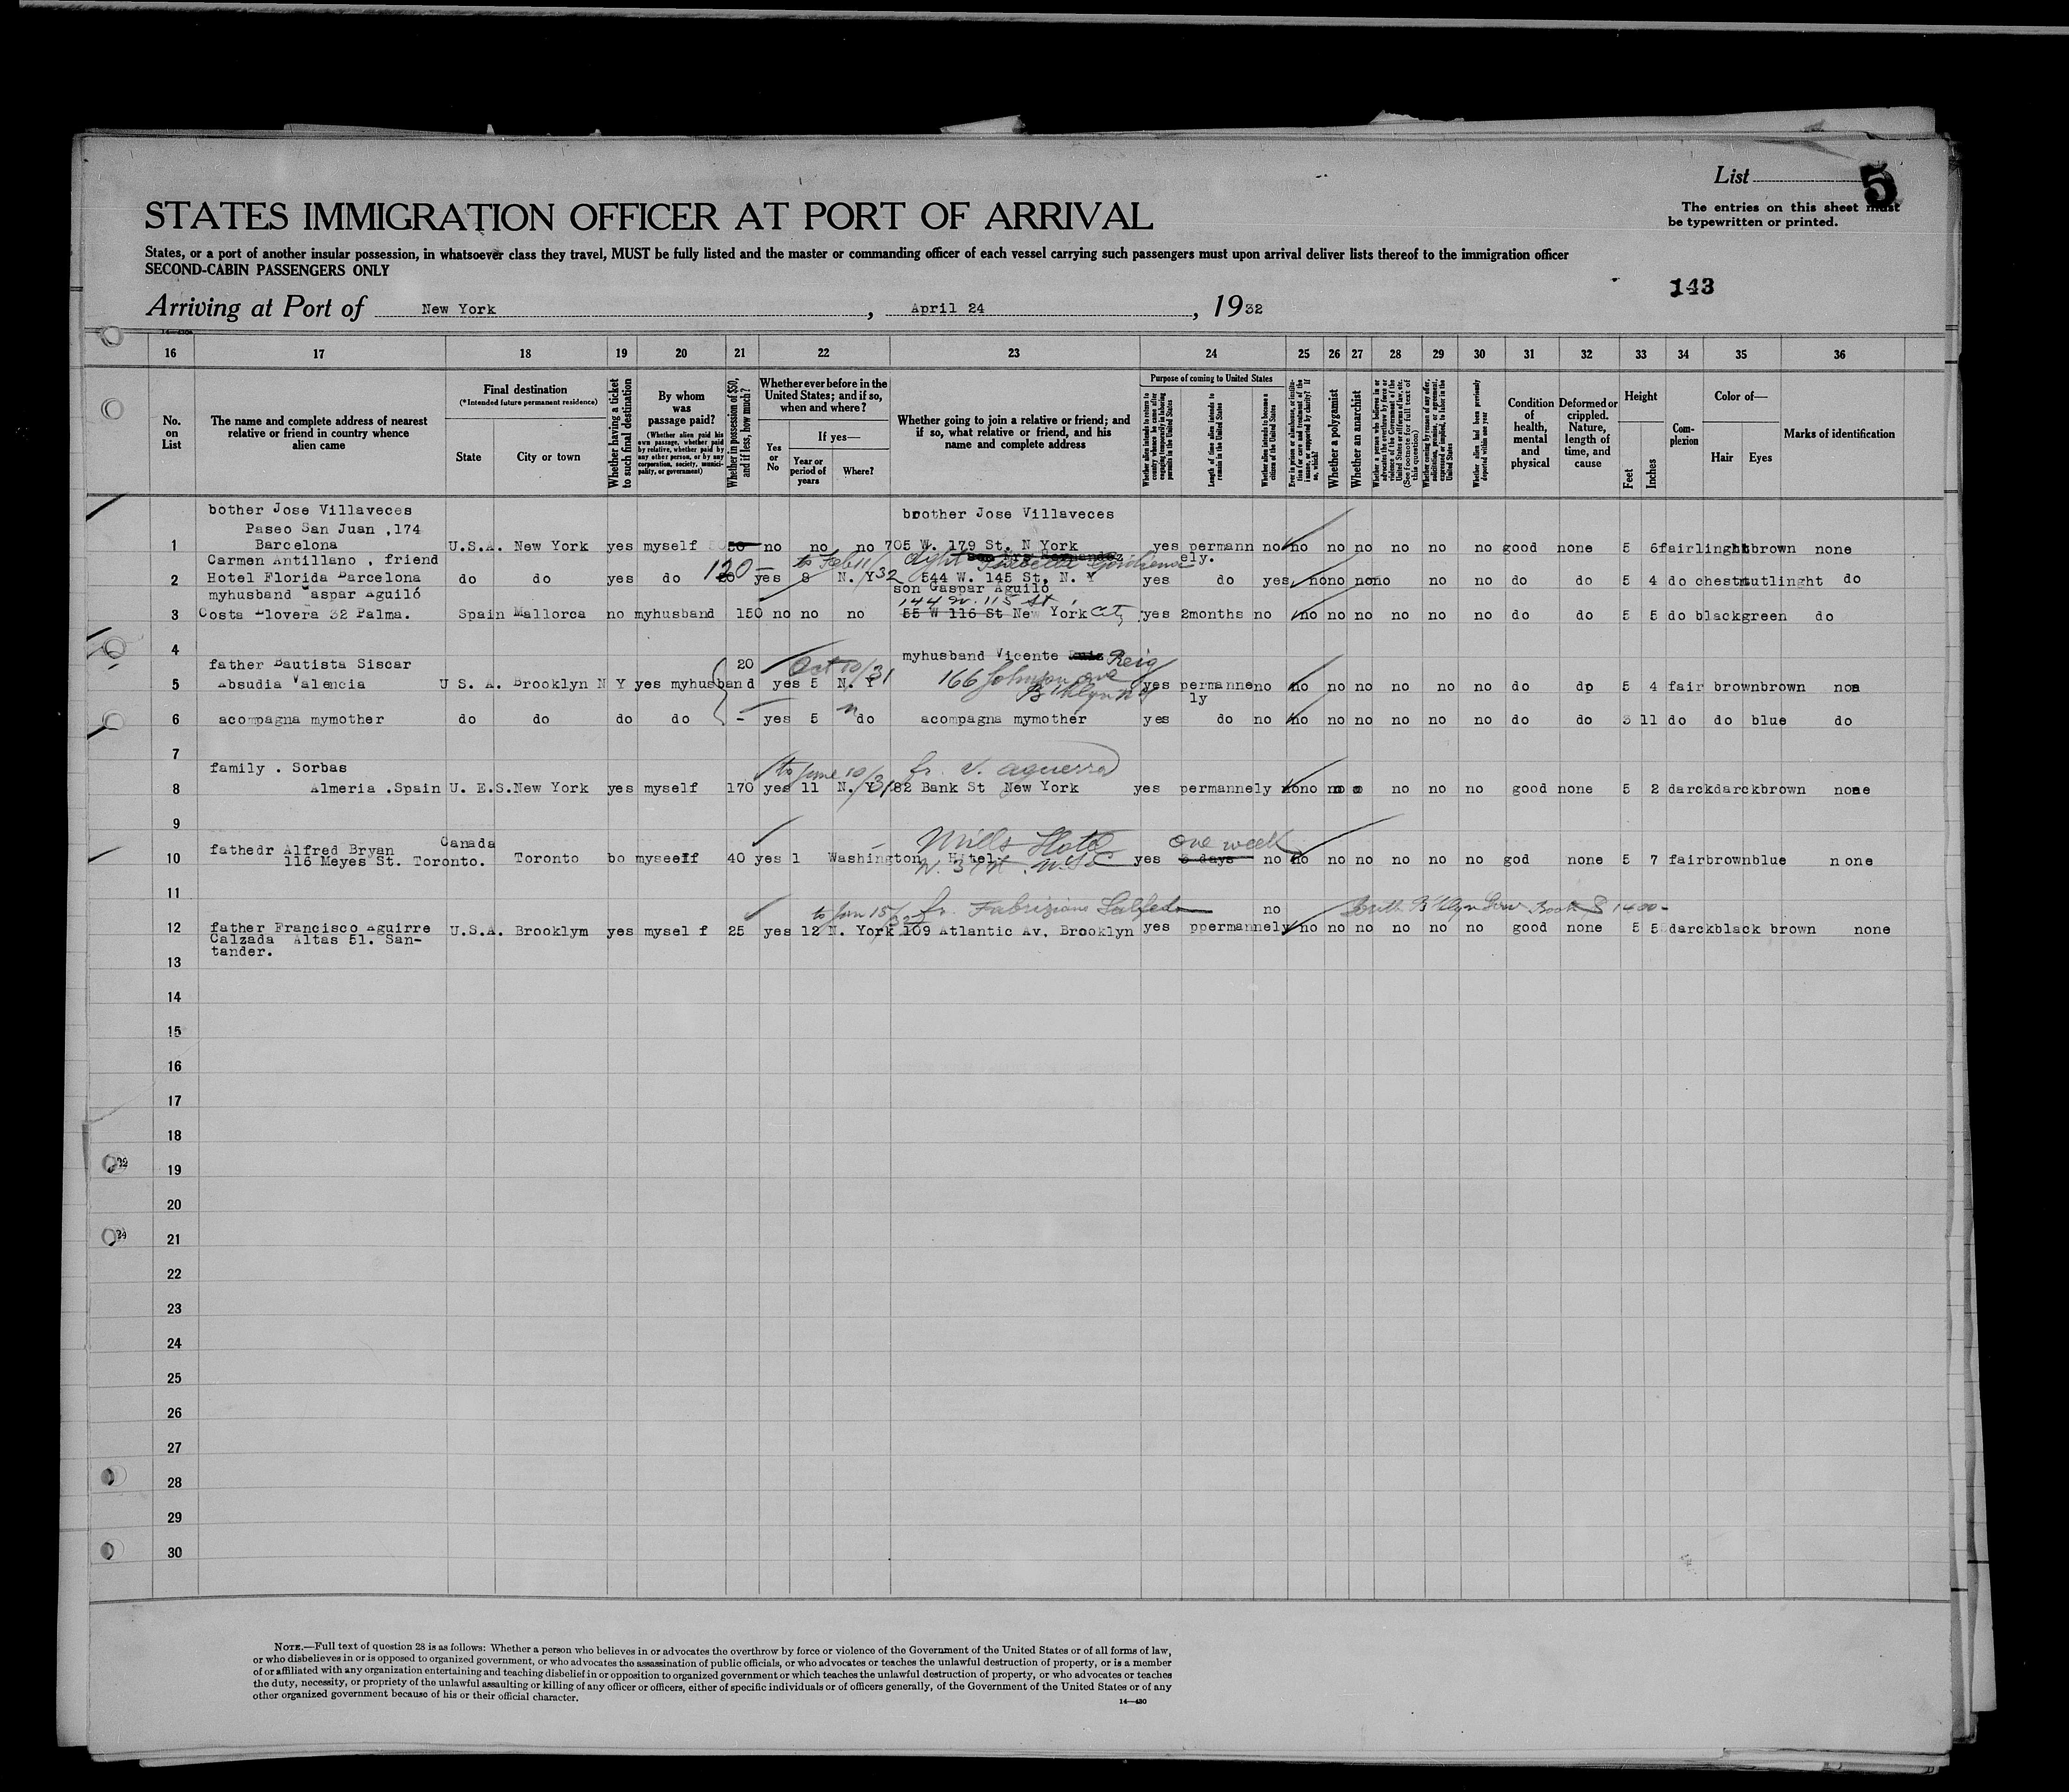 List 5
STATES IMMIGRATION OFFICER AT PORT OF ARRIVAL
The entries on this sheet must
be typewritten or printed.
States, or a port of another insular possession, in whatsoever class they travel, MUST be fully listed and the master or commanding officer of each vessel carrying such passengers must upon arrival deliver lists thereof to the immigration officer
SECOND-CABIN PASSENGERS ONLY
143
Arriving at Port of New York , April 24 , 1932
14—430
16 17 18 19 20 21 22 23 24 25 26 27 28 29 30 31 32 33 34 35 36
No. on List
The name and complete address of nearest relative or friend in country whence alien came
Final destination
(*Intended future permanent residence)
State
City or town
Whether having a ticket to such final destination
By whom was passage paid?
(Whether alien paid his own passage, whether paid by relative, whether paid by any other person, or by any corporation, society, municipality, or government)
Whether in possession of $50, and if less, how much?
Whether ever before in the United States; and if so, when and where?
Yes or No
If yes—
Year or period of years
Where?
Whether going to join a relative or friend; and if so, what relative or friend, and his name and complete address
Purpose of coming to United States
Whether alien intends to return to country whence he came after engaging temporarily in laboring pursuits in the United States
Length of time alien intends to remain in the United States
Whether alien intends to become a citizen of the United States
Ever in prison or almshouse, or institution for care and treatment of the insane, or supported by charity? If so, which?
Whether a polygamist
Whether an anarchist
Whether a person who believes in or advocates the overthrow by force or violence of the Government of the United States or all forms of law, etc. (See footnote for full text of this question)
Whether coming by reason of any offer, solicitation, promise, or agreement, expressed or implied, to labor in the United States
Whether alien had been previously deported within one year
Condition of health, mental and physical
Deformed or crippled. Nature, length of time, and cause
Height
Feet
Inches
Complexion
Color of—
Hair
Eyes
Marks of identification
bother Jose Villaveces brother Jose Villaveces
Paseo San Juan ,174
1 Barcelona U.S.A. New York yes myself 50 no no no 705 W. 179 St. N York yes permann no no no no no no no good none 5 6 fair linght brown none
Carmen Antillano , friend 120- to Feb 11/32 ely.
2 Hotel Florida Barcelona do do yes do yes 8 N. Y 544 W. 145 St, N. Y yes do yes no no no no no no do do 5 4 do chestnut linght do
myhusband Gaspar Aguiló son Gaspar Aguiló
144 W. 115 St
3 Costa Llovera 32 Palma. Spain Mallorca no myhusband 150 no no no 55 W 116 St New York City yes 2months no no no no no no no do do 5 5 do black green do
4
father Bautista Siscar 20 Oct 10/31 myhusband Vicente Reig
5 Absudia Valencia U S. A. Brooklyn N Y yes myhusband yes 5 N. Y 166 Johnson ave B'klyn N Y yes permanne no no no no no no no do do 5 4 fair brown brown non
ly
6 acompagna mymother do do do do - yes 5 do acompagna mymother yes do no no no no no no no do do 3 11 do do blue do
7
family . Sorbas to June 10/31 fr. V. aguerra
8 Almeria .Spain U. E.S. New York yes myself 170 yes 11 N. Y 82 Bank St New York yes permannely no no no no no no no good none 5 2 darck darck brown none
9
Canada Mills Hotel one week
fathedr Alfred Bryan
10 116 Meyes St. Toronto. Toronto bo myseelf 40 yes 1 Washington Hitel yes 3 days no no no no no no no god none 5 7 fair brown blue none
W. 37 St. N.Y.C
11
to Jan 15/32 fr. Fabriziano Salfedo no
12 father Francisco Aguirre U.S.A. Brooklym yes mysel f 25 yes 12 N. York 109 Atlantic Av, Brooklyn yes ppermannely no no no no no no good none 5 5 darck black brown none
Calzada Altas 51. San-
tander.
13
14
15
16
17
18
19
20
21
22
23
24
25
26
27
28
29
30
NOTE.—Full text of question 28 is as follows: Whether a person who believes in or advocates the overthrow by force or violence of the Government of the United States or of all forms of law,
or who disbelieves in or is opposed to organized government, or who advocates the assassination of public officials, or who advocates or teaches the unlawful destruction of property, or is a member
of or affiliated with any organization entertaining and teaching disbelief in or opposition to organized government or which teaches the unlawful destruction of property, or who advocates or teaches
the duty, necessity, or propriety of the unlawful assaulting or killing of any officer or officers, either of specific individuals or of officers generally, of the Government of the United States or of any
other organized government because of his or their official character.
14—430